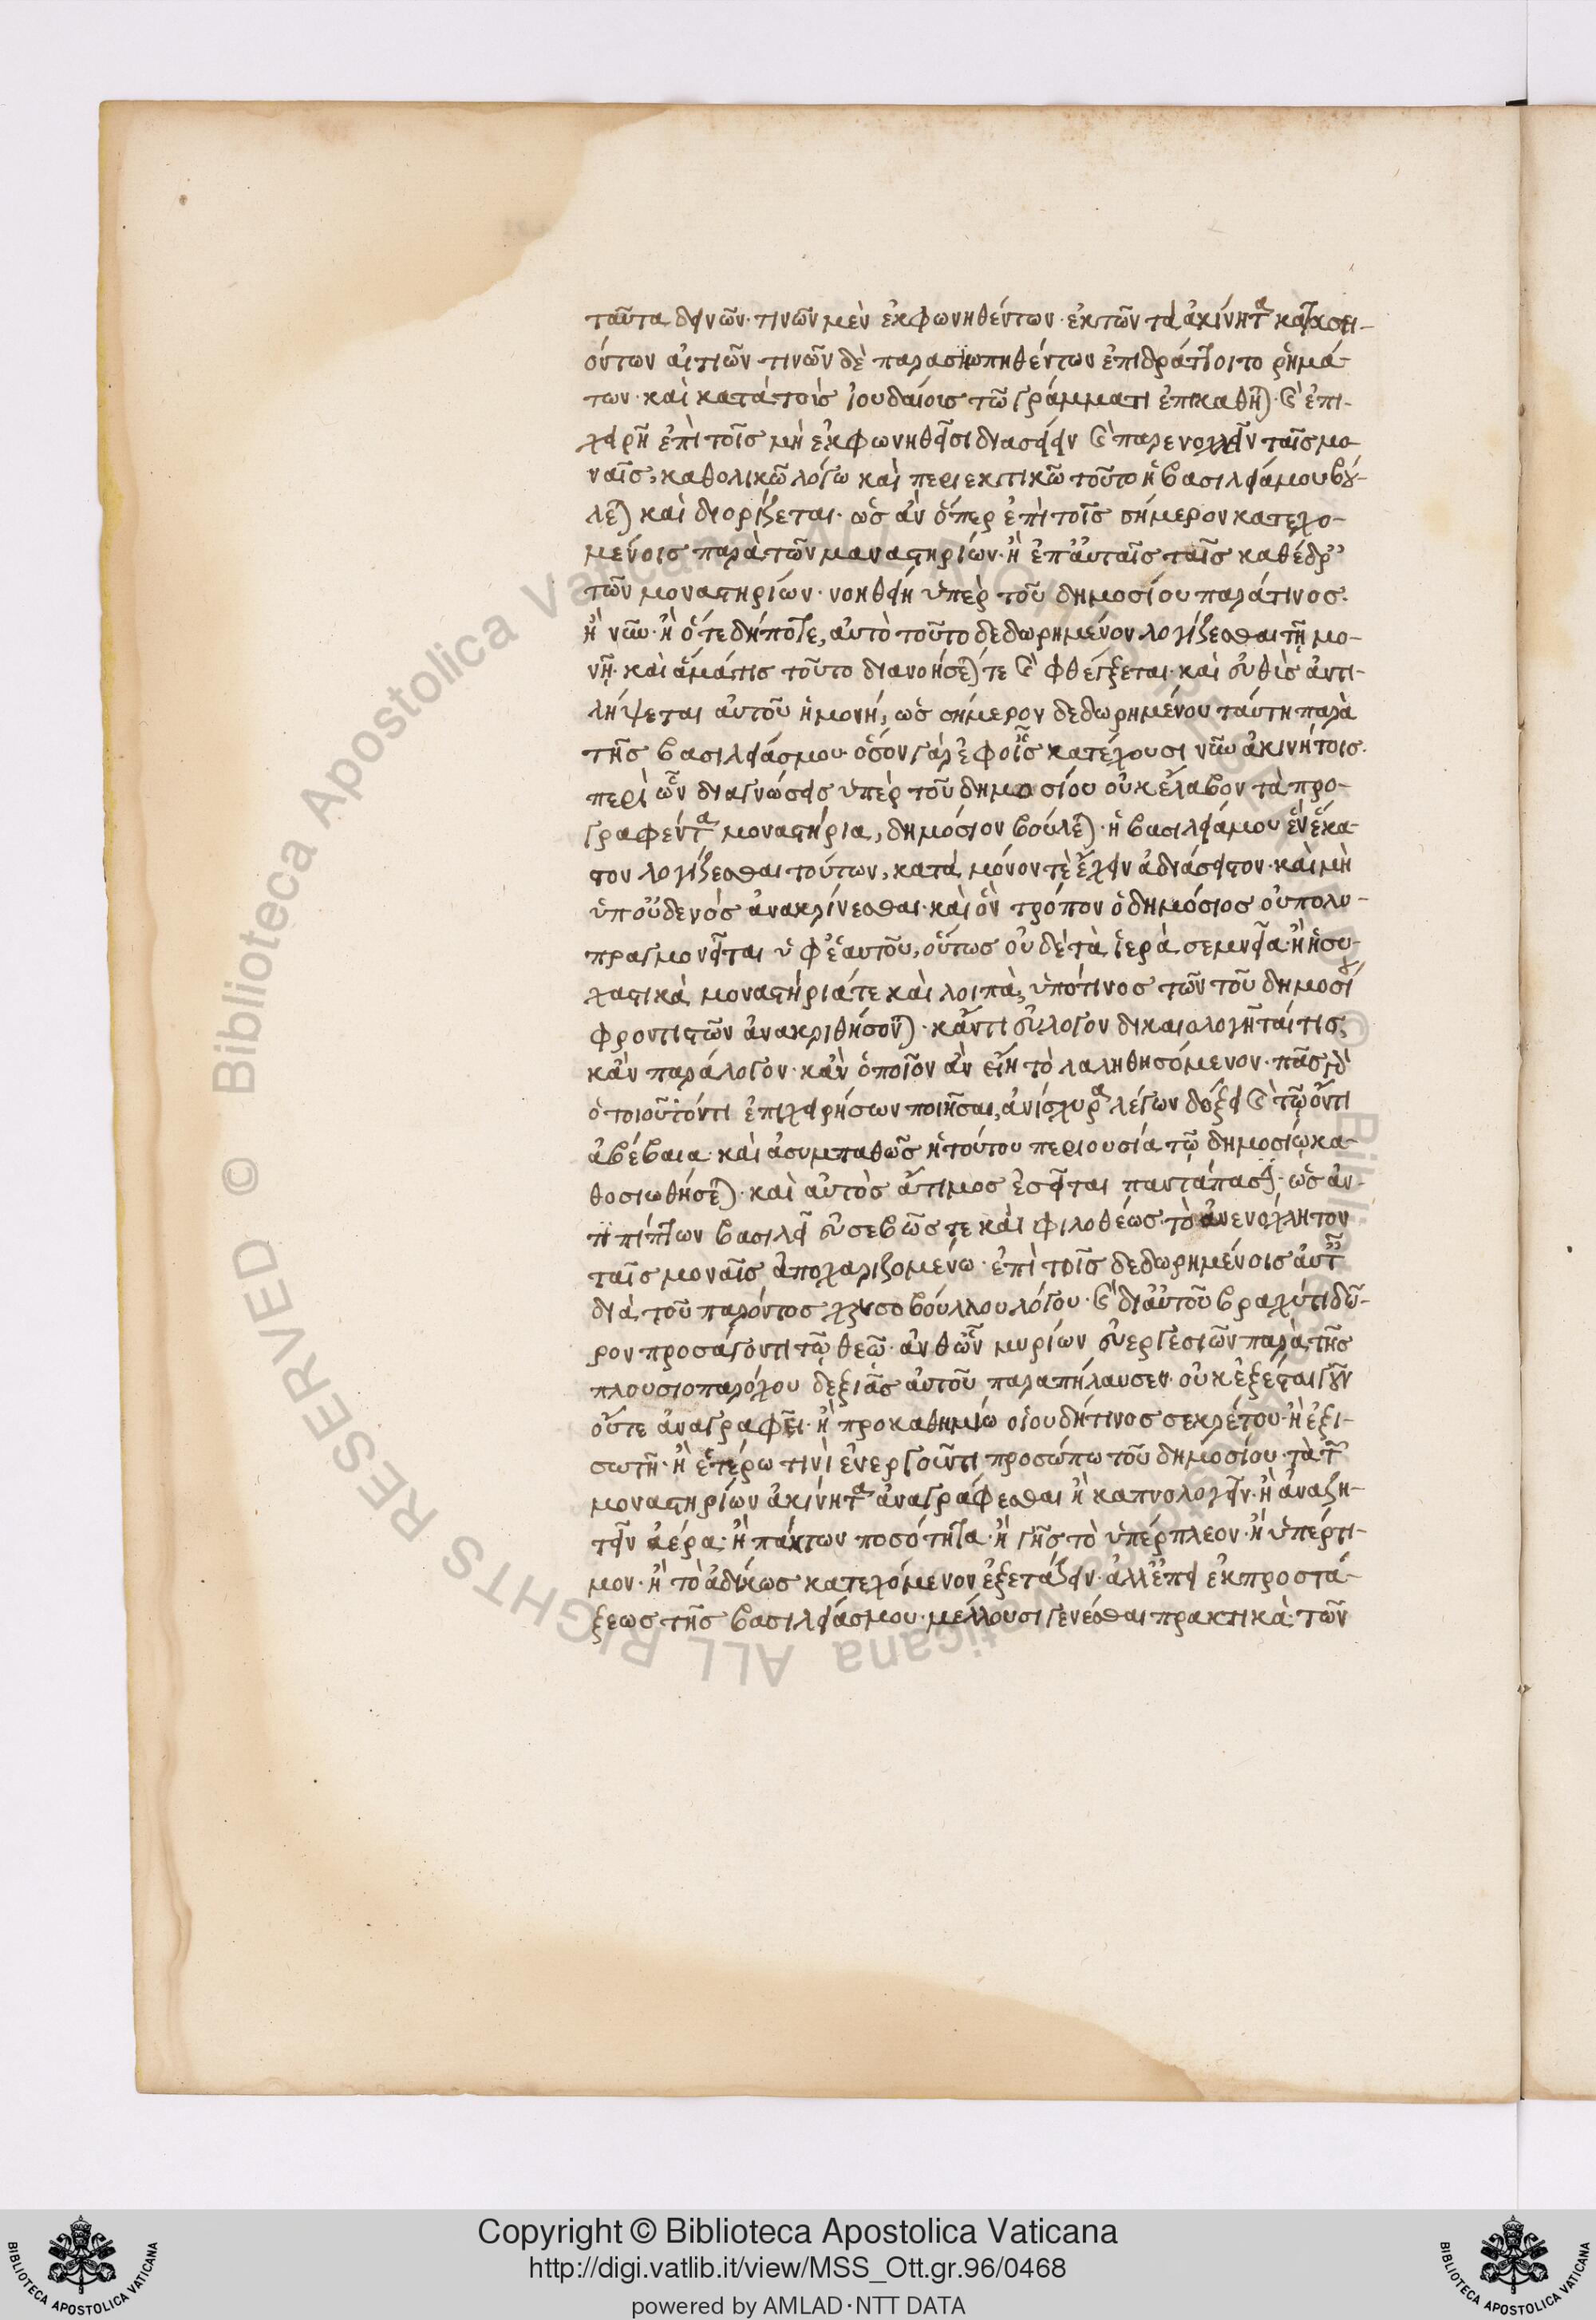 ταῦτα δεινῶν· τινῶν μὲν ἐκφωνηθέντων· ἐκ τῶν τὰ ἀκίνητα κατασει-
όντων αἰτιῶν· τινῶν δὲ παρασιωπηθέντων ἐπιδράττοιτο ῥημά-
των· καὶ κατὰ τοὺς ἰουδαίους τῶ γράμματι ἐπικαθῆται· καὶ ἐπι-
χειρῆ ἐπὶ τοῖς μὴ ἐκφωνηθεῖσι διασείειν καὶ παρενοχλεῖν ταῖς μο-
ναῖς, καθολικῶ λόγω καὶ περιεκτικῶ τοῦτο ἡ βασιλεία μου βού-
λεται καὶ διορίζεται· ὡς ἂν ὅπερ ἐπὶ τοῖς σήμερον κατεχο-
μένοις παρὰ τῶν μοναστηρίων· ἢ ἐπ' αὐταῖς ταῖς καθέδραις
τῶν μοναστηρίων· νοηθείη ὑπὲρ τοῦ δημοσίου παρά τινος·
ἢ νῦν· ἢ ὅτε δήποτε, αὐτὸ τοῦτο δεδωρημένον λογίζεσθαι τῇ μο-
νῇ· καὶ ἅμα τις τοῦτο διανοήσεταί τε καὶ φθέγξεται· καὶ εὐθὺς ἀντι-
λήψεται αὐτοῦ ἡ μονή, ὡς σήμερον δεδωρημένου ταύτη παρὰ
τῆς βασιλείας μου· ὅσον γὰρ ἐφ οἷς κατέχουσι νῦν ἀκινήτοις·
περὶ ὧν διαγνώσεις ὑπὲρ τοῦ δημοσίου οὐκ ἔλαβον τὰ προ-
γραφέντα μοναστήρια, δημόσιον βούλεται· ἡ βασιλεία μου ἓν ἕκα-
στον λογίζεσθαι τούτων, κατὰ μόνον τὸ ἔχειν ἀδιάσειστον· καὶ μὴ
ὑπ οὐδενὸς ἀνακρίνεσθαι· καὶ ὃν τρόπον ὁ δημόσιος οὐ πολυ-
πραγμονεῖται ὑφ ἑαυτοῦ, οὕτως οὐδὲ τὰ ἱερὰ σεμνεῖα· ἢ ἡσυ-
χαστικὰ μοναστήριά τε καὶ λοιπὰ, ὑπό τινος τῶν τοῦ δημοσίου
φροντιστῶν ἀνακριθήσονται· κἄν τι εὔλογον δικαιολογῆταί τις,
κἂν παράλογον· κἂν ὁποῖον ἂν εἴη τὸ λαληθησόμενον· πᾶς δὲ
ὁ τοιοῦτόν τι ἐπιχειρήσων ποιῆσαι, ἀνίσχυρα λέγων δόξει καὶ τῷ ὄντι
ἀβέβαια· καὶ ἀσυμπαθῶς ἡ τούτου περιουσία τῷ δημοσίῳ κα-
θοσιωθήσεται· καὶ αὐτὸς ἄτιμος ἐσεῖται παντάπασι· ὡς ἀν-
τιπίπτων βασιλεῖ εὐσεβῶς τε καὶ φιλοθέως· τὸ ἀνενόχλητον
ταῖς μοναῖς ἀποχαριζομένω· ἐπὶ τοῖς δεδωρημένοις αὐταῖς
διὰ τοῦ παρόντος χρυσοβούλλου λόγου· καὶ δι αὐτοῦ βραχύ τι δῶ-
ρον προσάγοντι τῷ θεῶ· ἀνθ ὧν μυρίων εὐεργεσιῶν παρὰ τῆς
πλουσιοπαρόχου δεξιᾶς αὐτοῦ παραπήλαυσεν· οὐκ ἐξέσται γοῦν
οὔτε ἀναγραφεῖ· ἢ προκαθημένω οἱουδήτινος σεκρέτου· ἢ ἐξι-
σωτῆ· ἢ ἑτέρω τινὶ ἐνεργοῦντι προσώπω τοῦ δημοσίου· τὰ τῶν
μοναστηρίων ἀκίνητα ἀναγράφεσθαι ἢ καπνολογεῖν· ἢ ἀναζη-
τεῖν ἀέρα· ἢ πάκτων ποσότητα· ἢ γῆς τὸ ὑπέρπλεον· ἢ ὑπέρτι-
μον· ἢ τὸ ἀδίκως κατεχόμενον ἐξετάζειν· ἀλλ' ἐπεὶ ἐκ προστά-
ξεως τῆς βασιλείας μου· μέλλουσι γενέσθαι πρακτικὰ· τῶν
Copyright © Biblioteca Apostolica Vaticana
http://digi.vatlib.it/view/MSS_Ott.gr.96/0468
powered by AMLAD·NTT DATA
BIBLIOTECA APOSTOLICA VATICANA
BIBLIOTECA APOSTOLICA VATICANA
© Biblioteca Apostolica Vaticana ALL RIGHTS RESERVED
© Biblioteca Apostolica Vaticana ALL RIGHTS RESERVED